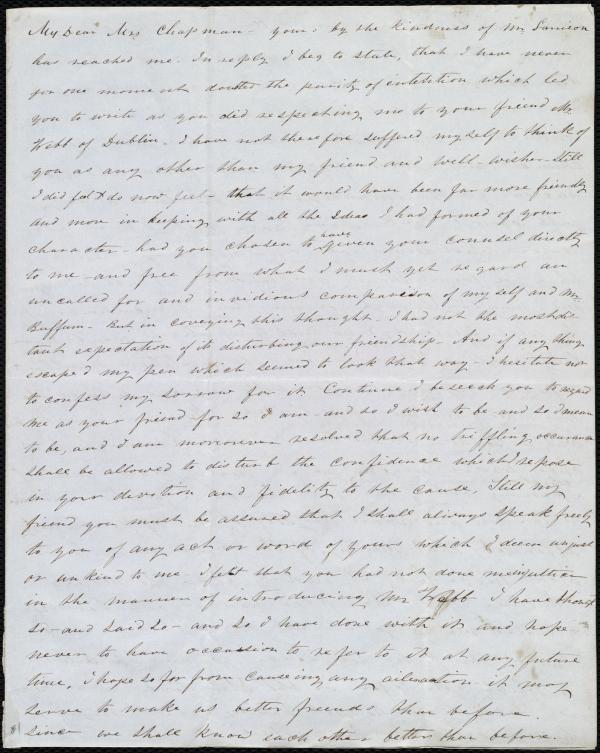 My Dear Mrs Chapman - yours by the kindness of Mr Garrison
has reached me. In reply I beg to state, that I have never
for one moment doubted the purity of intention which led
you to write as you did respecting me to your friend Mr
Webb of Dublin. I have not therefore suffered myself to think of
you as any other than my friend and well-wisher. Still
I did feel & do now feel - that it would have been far more friendly
and more in keeping with all the Ideas I had formed of your
character - had you chosen to have given your counsel directly
to me - and free from what I must yet regard an
uncalled for and invidious comparison of myself and Mr
Buffum - But in coveying this thought - I had not the most dis-
tant expectation of it disturbing our friendship - And if any thing
escaped my pen which seemed to look that way - I hesitate not
to confess my sorrow for it Continue I beseech you to regard
me as your friend for so I am - and so I wish to be and so I mean
to be, and I am moreover resolved that no triffling occurance
shall be allowed to disturb the confidence which I repose
in your devotion and fidelity to the cause. Still my
friend you must be assured that I shall always speak freely
to you of any act or word of yours which I deem unjust
or unkind to me. I felt that you had not done me injustice
in the manner of introducing Mr Webb I have thought
so - and said so - and so I have done with it and hope
never to have occasion to refer to it at any future
time, I hope so far from causeing any alienation it may
serve to make us better friends than before.
since we shall know each other better than before.